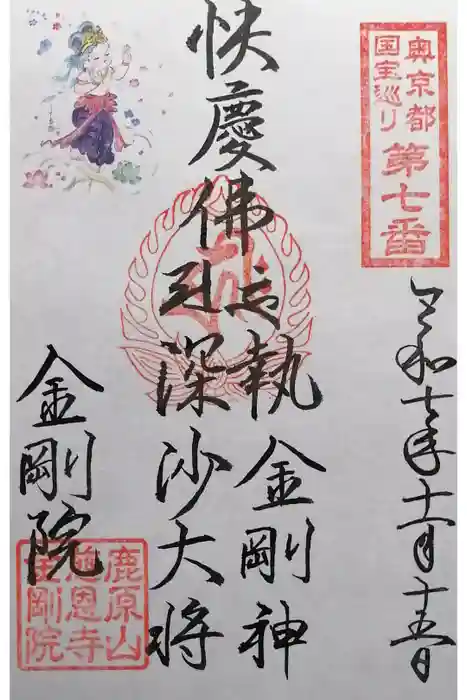 奥京都
国宝巡り
第七番
令和七年十一月十五日
快慶佛
執金剛神
深沙大将
金剛院
鹿原山
慈恩寺
金剛院